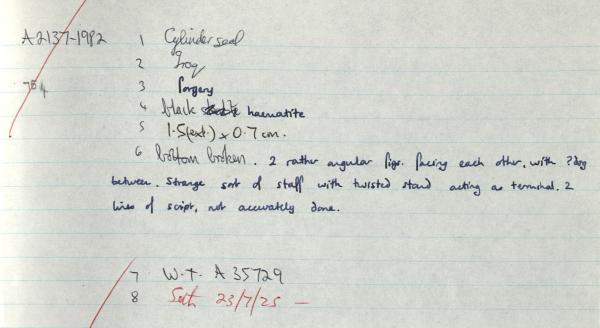 A2137-1982 1 Cylinder seal
2 Iraq
754 3 Forgery
4 black haematite
5 1.5(ext.) x 0.7cm.
6 bottom broken. 2 rather angular figs. facing each other, with ?dog
between. Strange sort of staff with twisted stand acting as terminal. 2
lines of script, not accurately done.
7 W.T. A35729
8 Soth 23/7/25 —